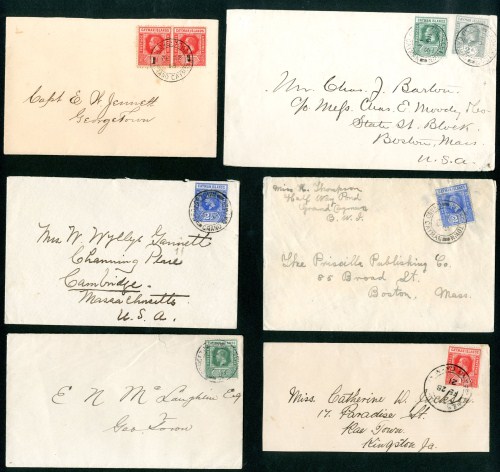 CAYMAN ISLANDS
Capt E. W. Jennett
Georgetown
CAYMAN ISLANDS
Mr. Chas. J. Barlow
c/o Messs Chas. E Moody & Co.
State St. Block,
Boston, Mass.
U.S.A.
CAYMAN ISLANDS
Mrs W. Wyllys Gannett
Channing Place
Cambridge
Massachusetts
U.S.A.
CAYMAN ISLANDS
Miss H. Thompson
Half Way Pond
Grand Cayman
B. W. I.
The Priscilla Publishing Co.
85 Broad St.
Boston, Mass.
CAYMAN ISLANDS
E N McLaughlin Esq
Geo Town
CAYMAN ISLANDS
Miss. Catherine D.
17. Paradise St.
Rae Town.
Kingston Ja.